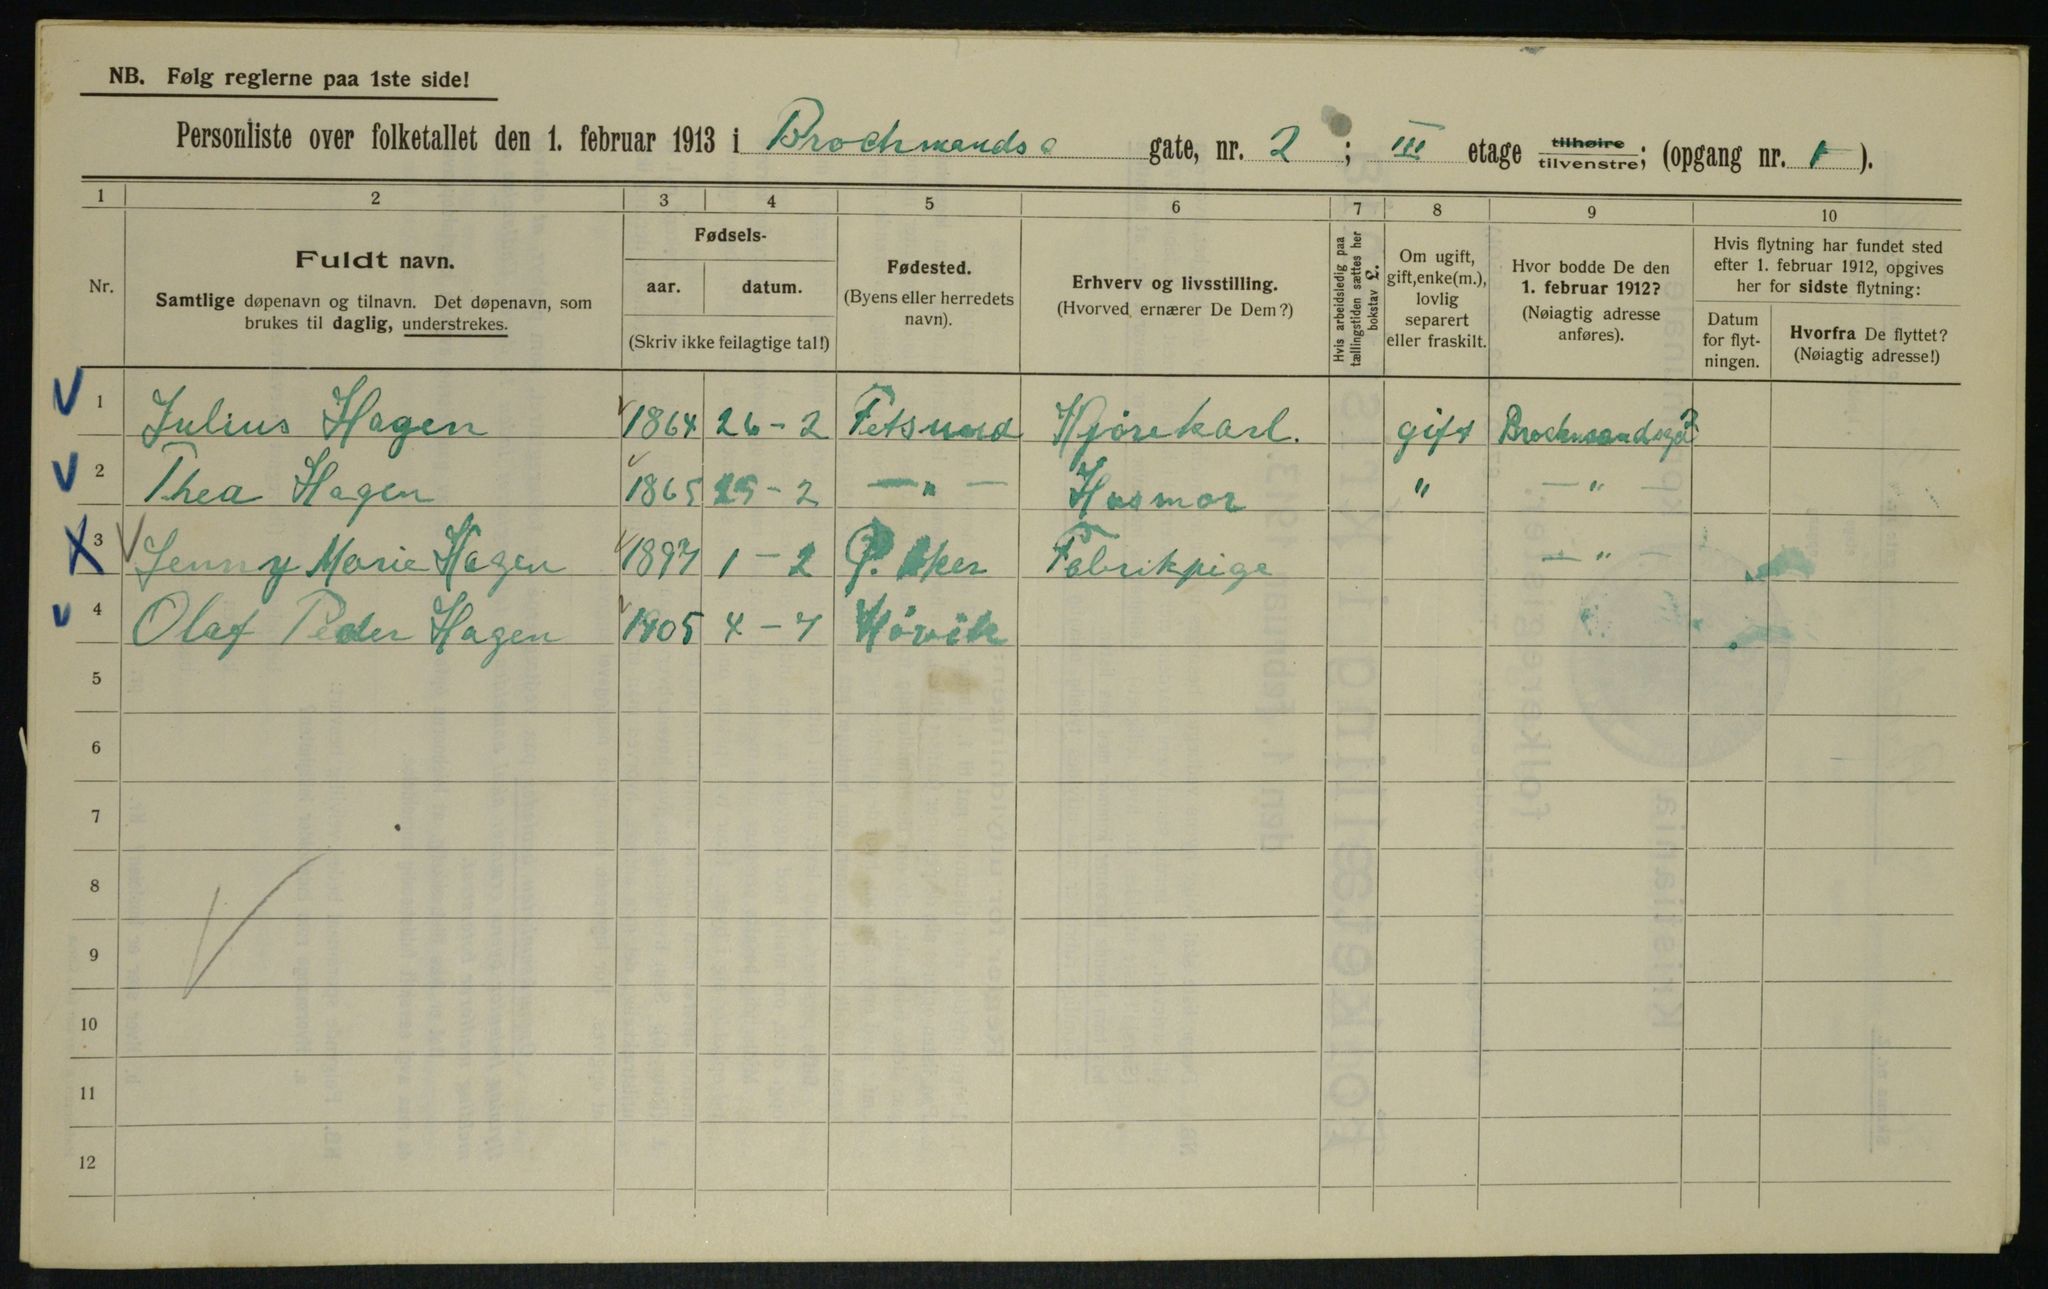 NB. Følg reglerne paa 1ste side!
Personliste over folketallet den 1. februar 1913 i Brochmands gate, nr. 2 ; III etage tilhøire tilvenstre; (opgang nr. 1 ).
1 2 3 4 5 6 7 8 9 10
Nr.
Fuldt navn.
Samtlige døpenavn og tilnavn. Det døpenavn, som
brukes til daglig, understrekes.
Fødsels-
aar. datum.
(Skriv ikke feilagtige tal!)
Fødested.
(Byens eller herredets
navn).
Erhverv og livsstilling.
(Hvorved ernærer De Dem?)
Hvis arbeidsledig paa
tællingstiden sættes her
bokstav L.
Om ugift,
gift, enke(m.),
lovlig
separert
eller fraskilt.
Hvor bodde De den
1. februar 1912?
(Nøiagtig adresse
anføres).
Hvis flytning har fundet sted
efter 1. februar 1912, opgives
her for sidste flytning:
Datum
for flyt-
ningen.
Hvorfra De flyttet?
(Nøiagtig adresse!)
1 Julius Hagen 1864 26 - 2 Fetsund Kjørekarl. gift Brochmandsgt 2
2 Thea Hagen 1865 25 - 2 — " — Husmor " — " —
3 Jenny Marie Hagen 1897 1 - 2 Ø. Aker Fabrikpige — " —
4 Olaf Peder Hagen 1905 4 - 7 Høvik
5
6
7
8
9
10
11
12